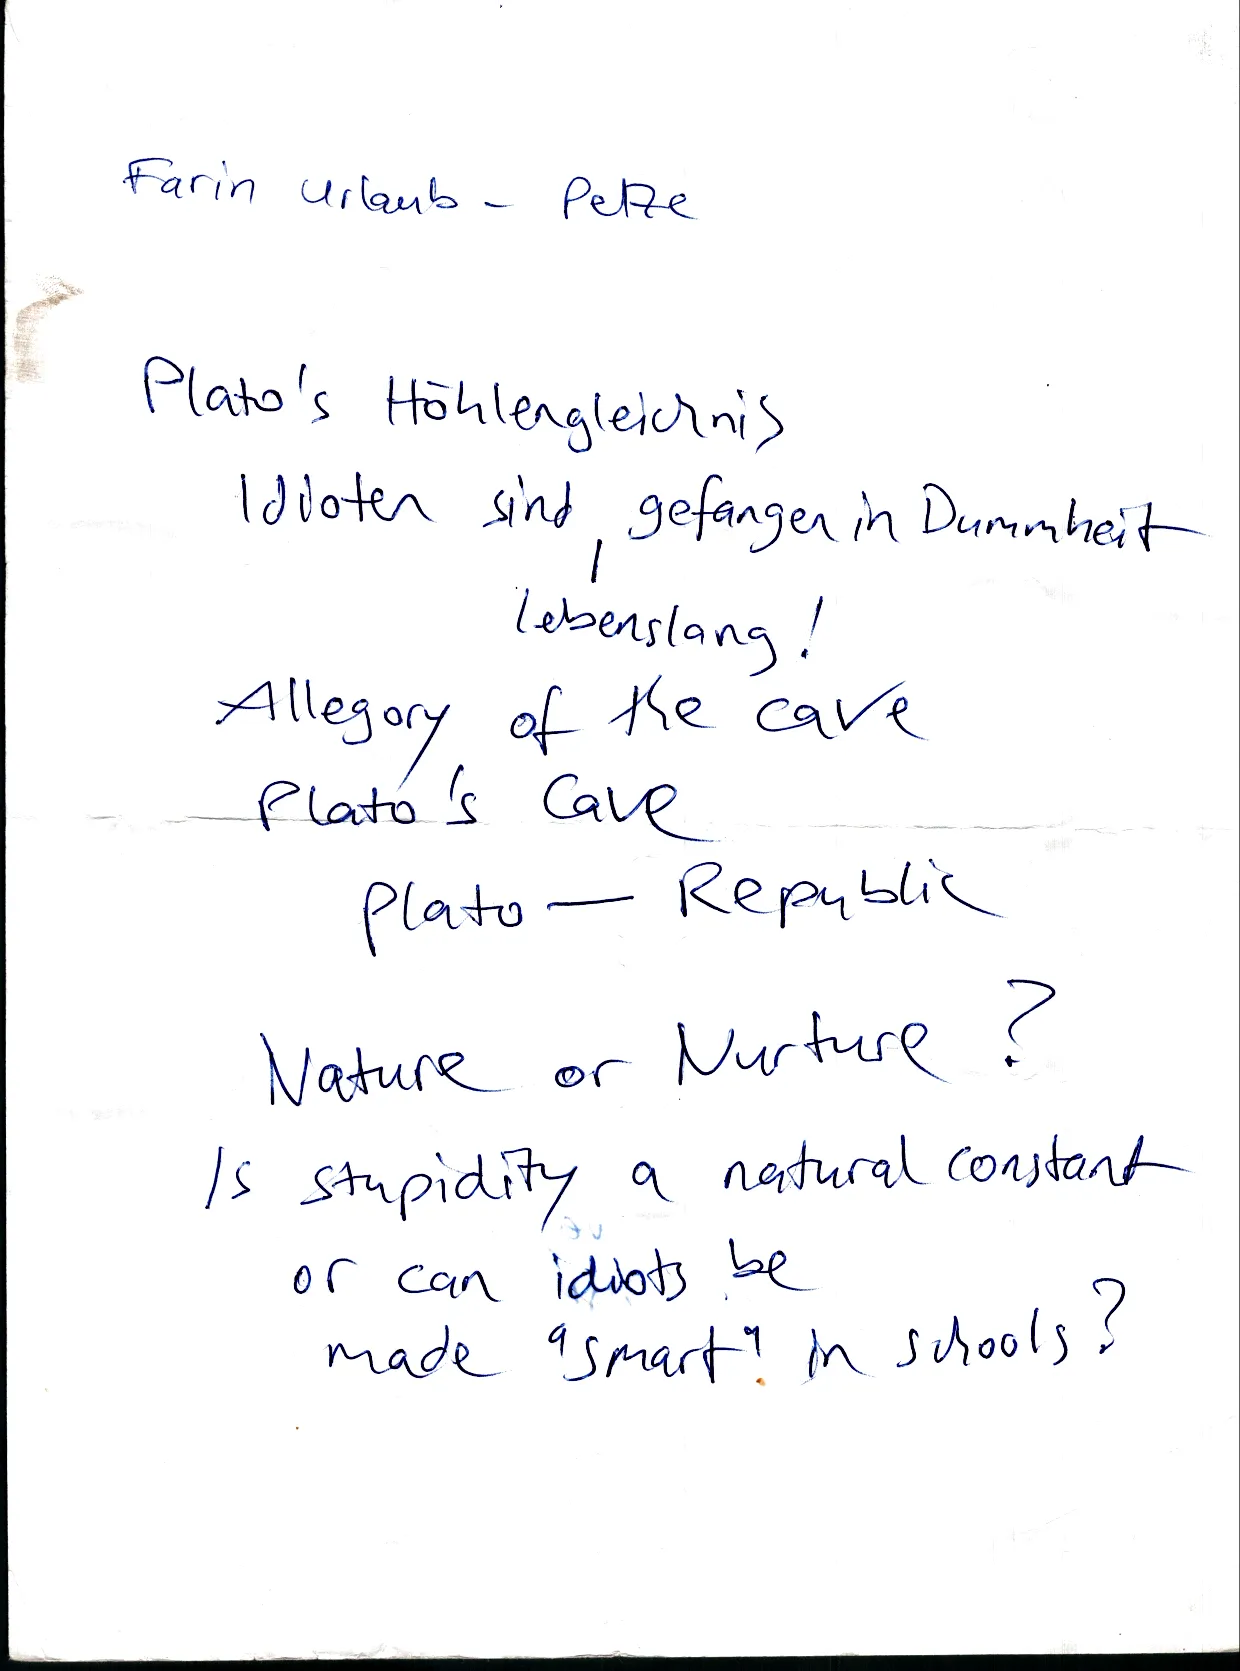 Farin Urlaub – Petze
Plato's Höhlengleichnis
Idioten sind, gefangen in Dummheit
lebenslang!
Allegory of the cave
Plato's Cave
Plato — Republic
Nature or Nurture?
Is stupidity a natural constant
or can idiots be
made "smart" in schools?